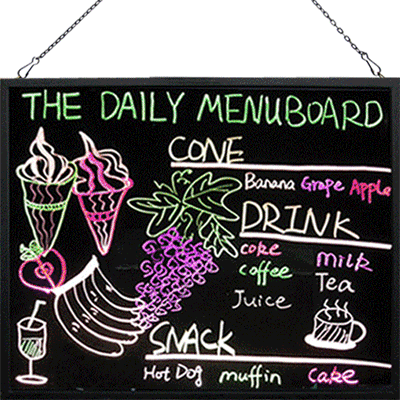 THE DAILY MENUBOARD
CONE
Banana Grape Apple
DRINK
coke milk
coffee Tea
Juice
SNACK
Hot Dog muffin cake